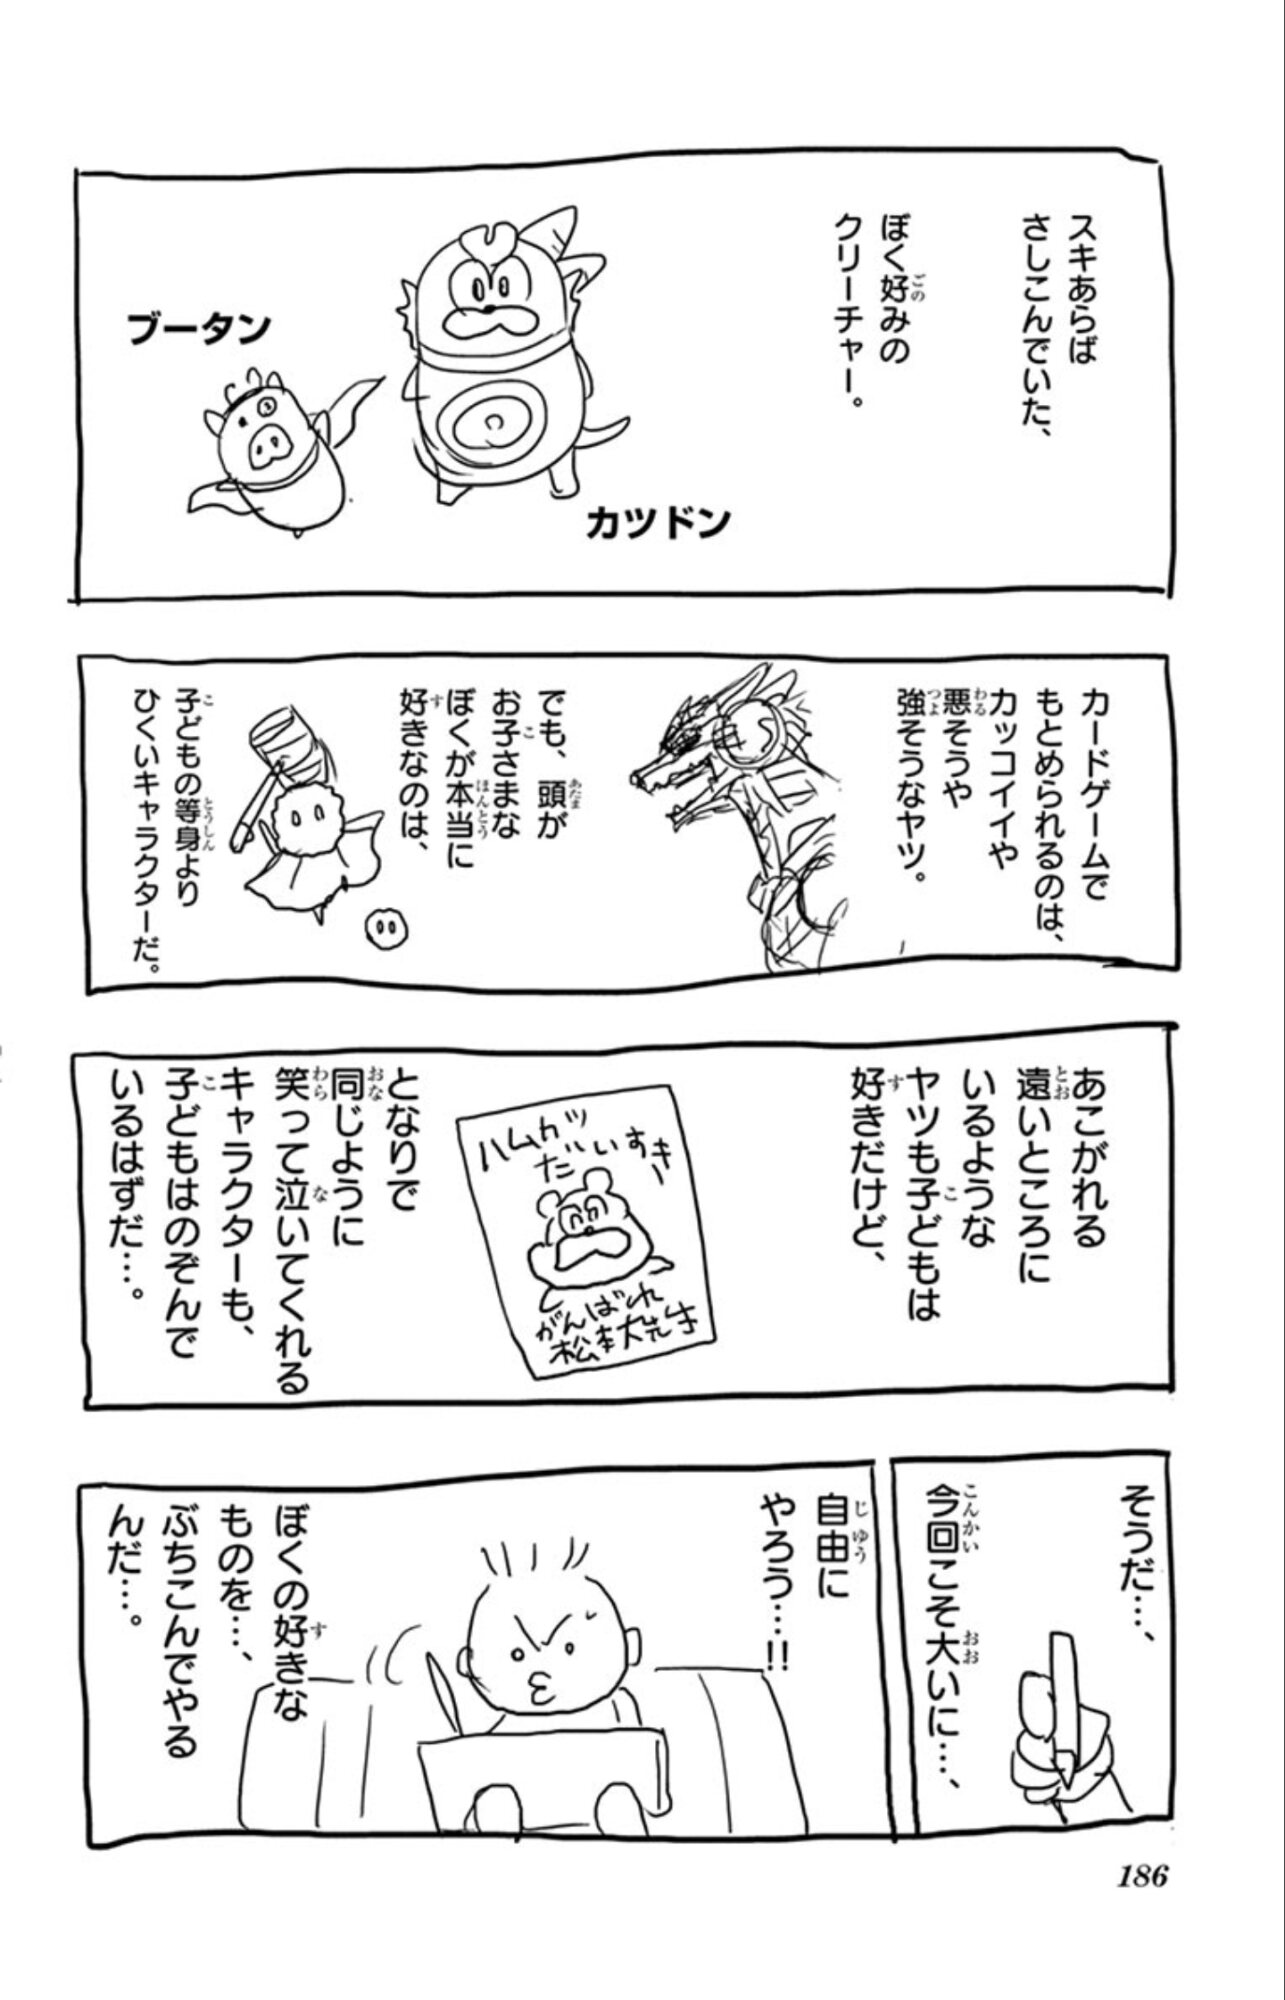 スキあらば
さしこんでいた、
ぼく好みの
クリーチャー。
カツドン
ブータン
カードゲームで
もとめられるのは、
カッコイイや
悪そうや
強そうなヤツ。
でも、頭が
お子さまな
ぼくが本当に
好きなのは、
子どもの等身より
ひくいキャラクターだ。
あこがれる
遠いところに
いるような
ヤツも子どもは
好きだけど、
ハムカツ
だいすき
がんばれ
松本大先生
となりで
同じように
笑って泣いてくれる
キャラクターも、
子どもはのぞんで
いるはずだ…。
そうだ…、
今回こそ大いに…、
自由に
やろう…!!
ぼくの好きな
ものを…、
ぶちこんでやる
んだ…。
186